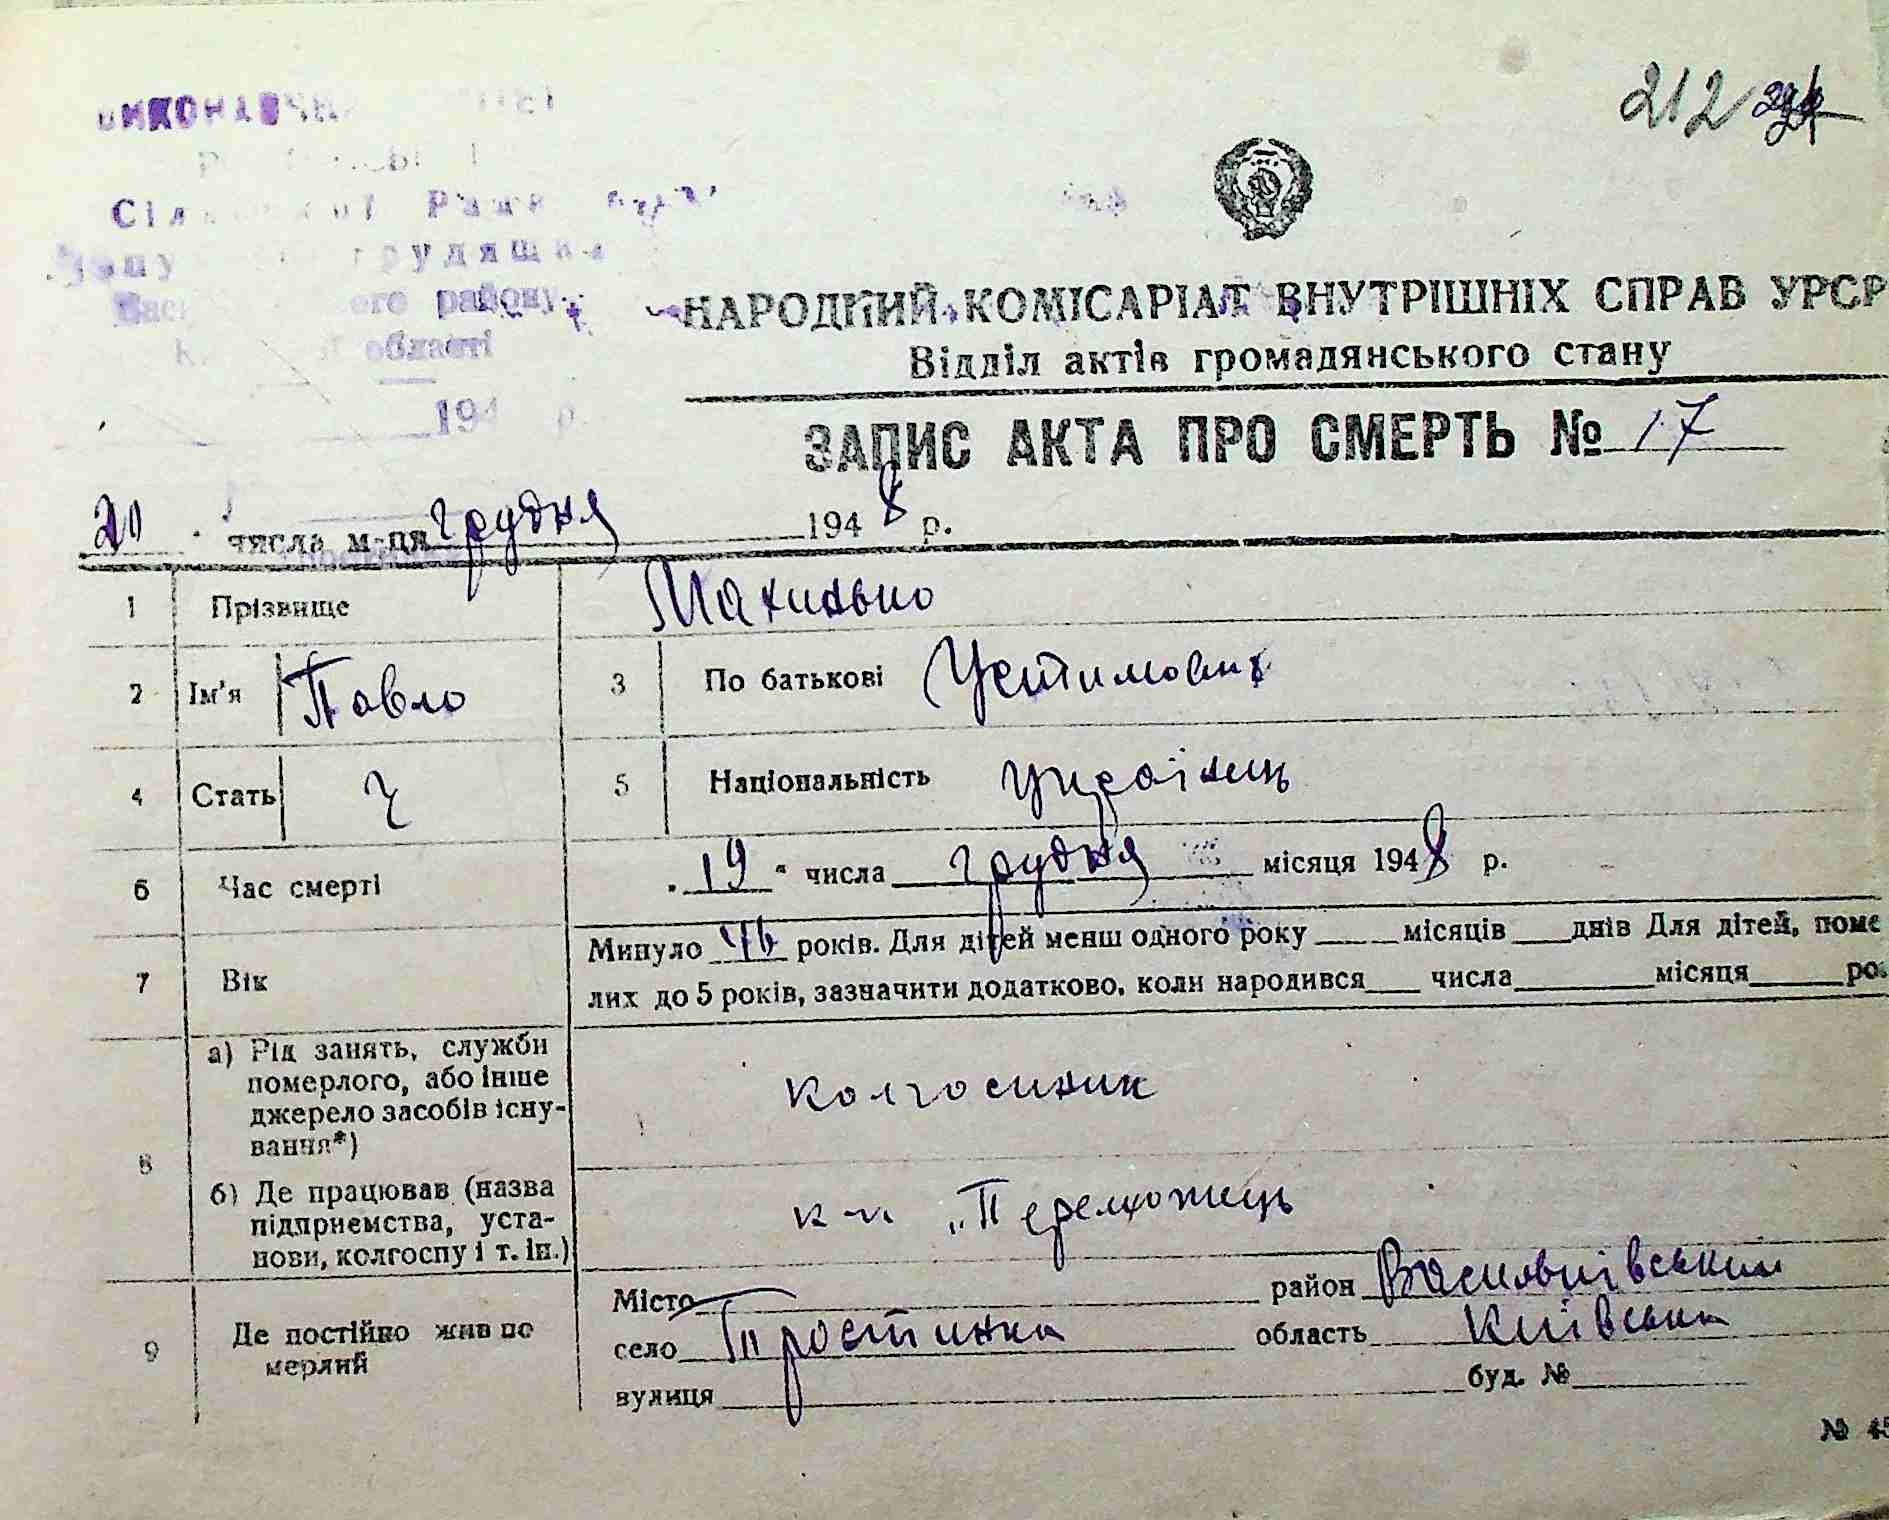 212
області
району
194 р.
НАРОДНИЙ КОМІСАРІАТ ВНУТРІШНІХ СПРАВ УРСР
Відділ актів громадянського стану
ЗАПИС АКТА ПРО СМЕРТЬ № 17
20 числа м-ця грудня 1948 р.
1 Прізвище Махинько
2 Ім'я Павло 3 По батькові Устимович
4 Стать ч 5 Національність українець
6 Час смерті „19“ числа грудня місяця 1948 р.
7 Вік Минуло 46 років. Для дітей менш одного року місяців днів Для дітей, поме
лих до 5 років, зазначити додатково, коли народився числа місяця ро
8 а) Рід занять, служби
померлого, або інше
джерело засобів існу-
вання*) колгоспник
б) Де працював (назва
підприємства, уста-
нови, колгоспу і т. ін.) к-п „Переможець
9 Де постійно жив по
мерлий
Місто район Васильківський
село Тростинка область Київська
вулиця буд. №
№ 45